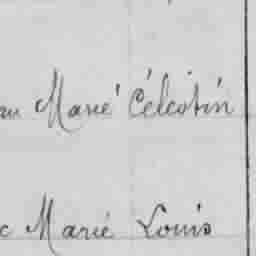 Marié Célestin
Marié Louis